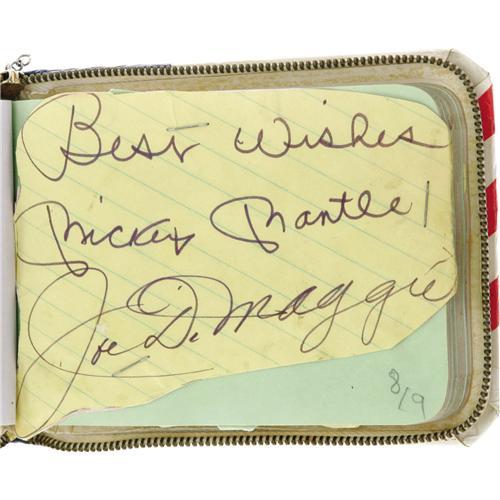 Best Wishes
Mickey Mantle
Joe DiMaggio
8/9